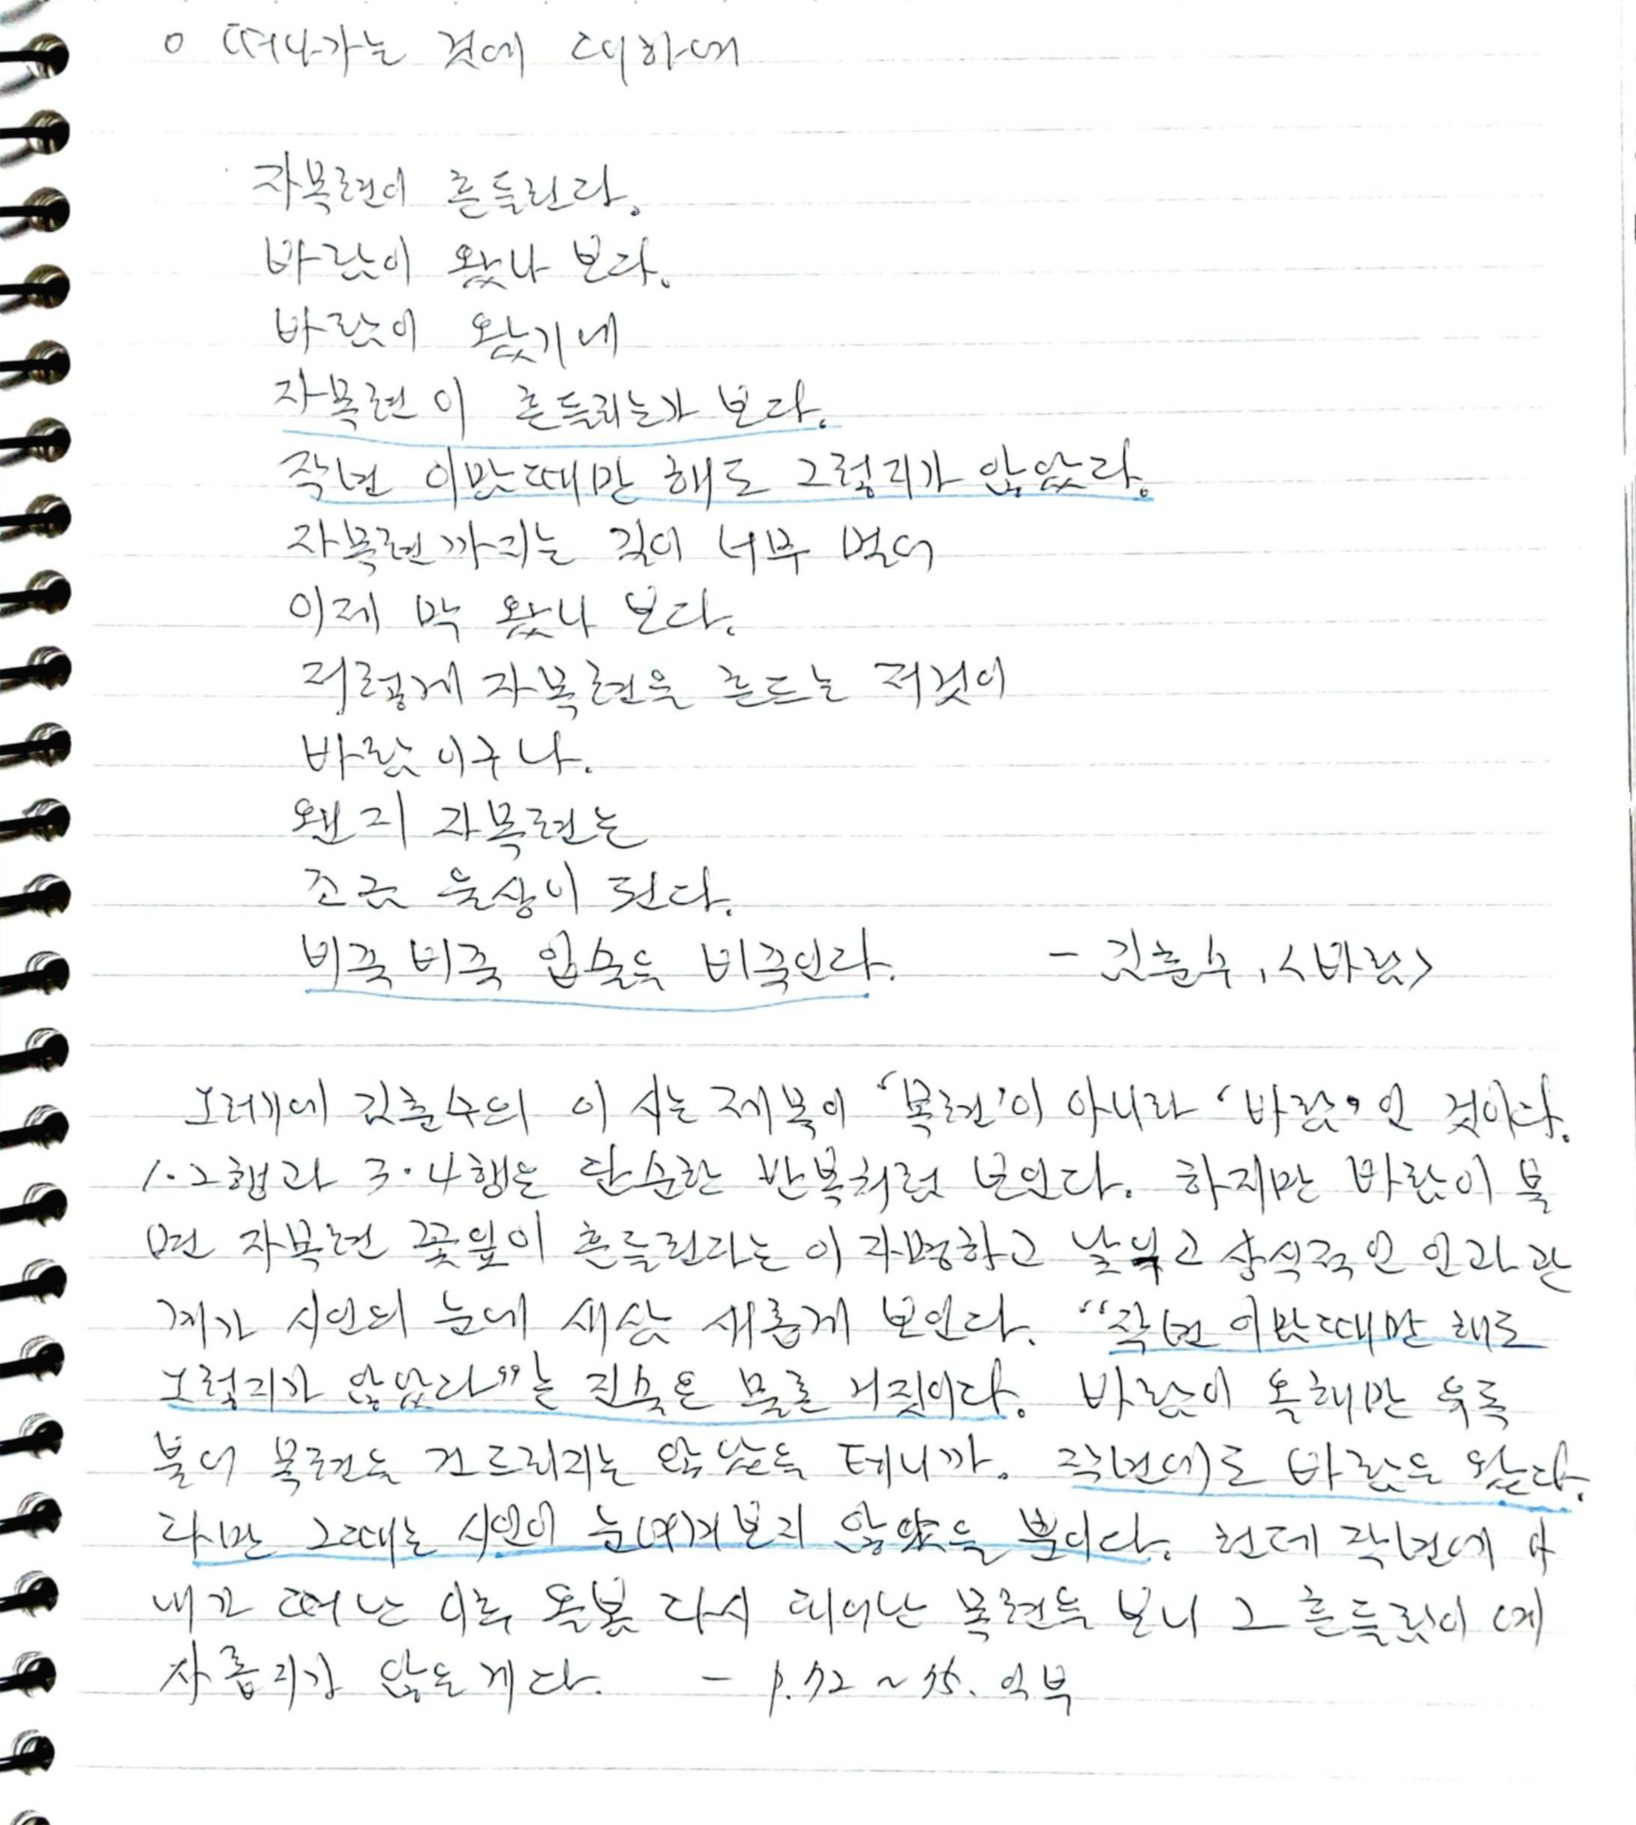 o 떠나가는 것에 대하여
자목련이 흔들린다.
바람이 왔나 보다.
바람이 왔기에
자목련이 흔들리는가 보다.
작년 이맘때만 해도 그렇지가 않았다.
자목련까지는 길이 너무 멀어
이제 막 왔나 보다.
저렇게 자목련을 흔드는 저것이
바람이구나.
왠지 자목련은
조금 울상이 된다.
비죽비죽 입술을 비죽인다. - 김춘수, <바람>
그러기에 김춘수의 이 시는 제목이 '목련'이 아니라 '바람'인 것이다.
1·2행과 3·4행은 단순한 반복처럼 보인다. 하지만 바람이 불
면 자목련 꽃잎이 흔들린다는 이 자명하고 낡고 상식적인 인과 관
계가 시인의 눈에 새삼 새롭게 보인다. "작년 이맘때만 해도
그렇지가 않았다"는 진술은 물론 거짓이다. 바람이 올해만 유독
불어 목련을 건드리지는 않았을 테니까. 작년에도 바람은 왔다.
다만 그때는 시인이 눈여겨보지 않았을 뿐이다. 헌데 작년에 아
내가 떠난 이후 올봄 다시 피어난 목련을 보니 그 흔들림이 예
사롭지가 않은 게다. - p.72~75. 일부